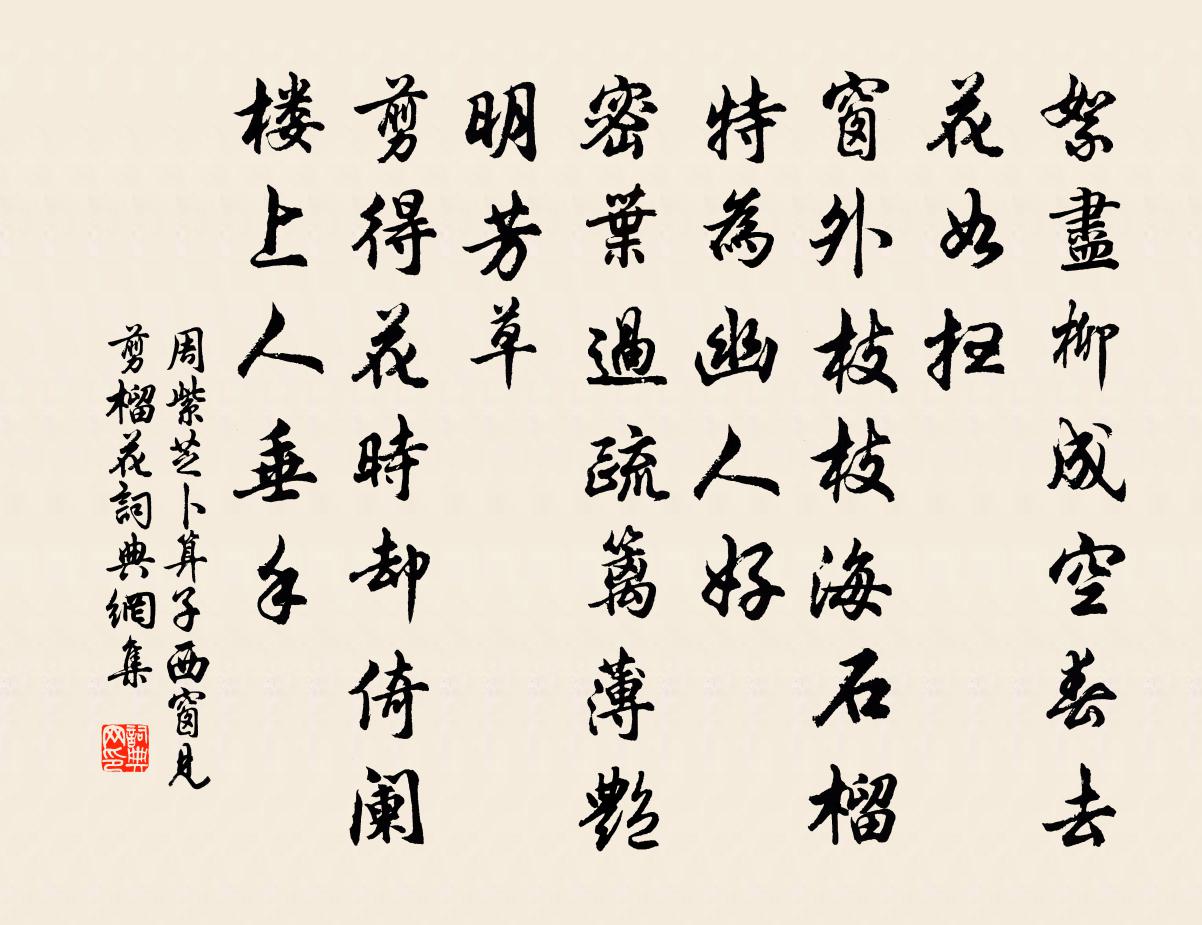 絮盡柳成空春去
花如扫
窗外枝枝海石榴
特為幽人好
密葉過疏篱薄艷
明芳草
剪得花時却倚闌
楼上人垂手
周紫芝卜算子西窗見
剪榴花詞典網集
詞典网印